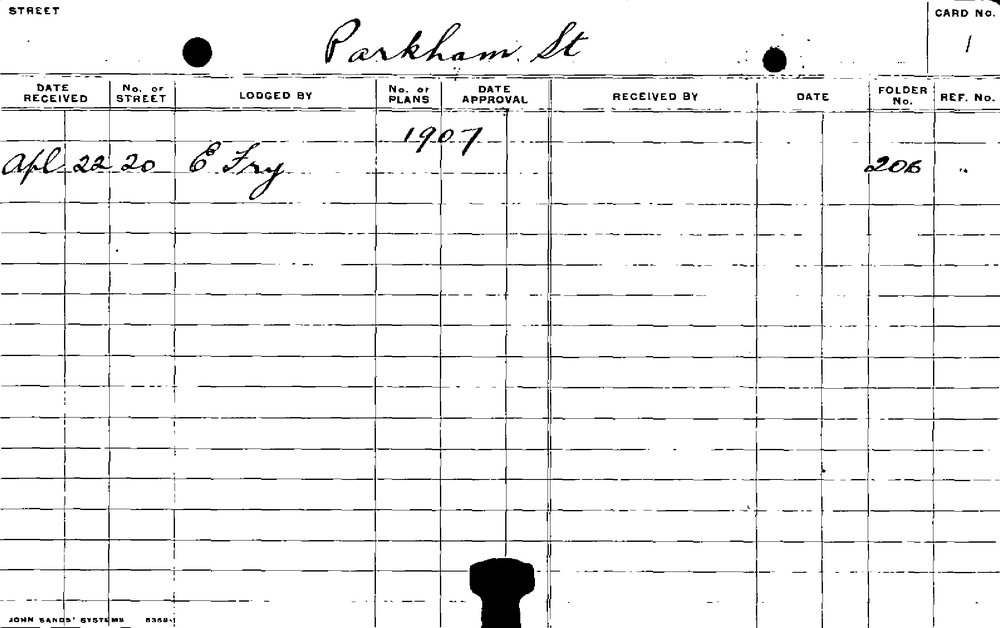 STREET
Parkham St
CARD No.
1
DATE RECEIVED
No. OF STREET
LODGED BY
No. OF PLANS
DATE APPROVAL
RECEIVED BY
DATE
FOLDER No.
REF. No.
1907
Apl 22 20 E Fry 206 "
JOHN SANDS' SYSTEMS